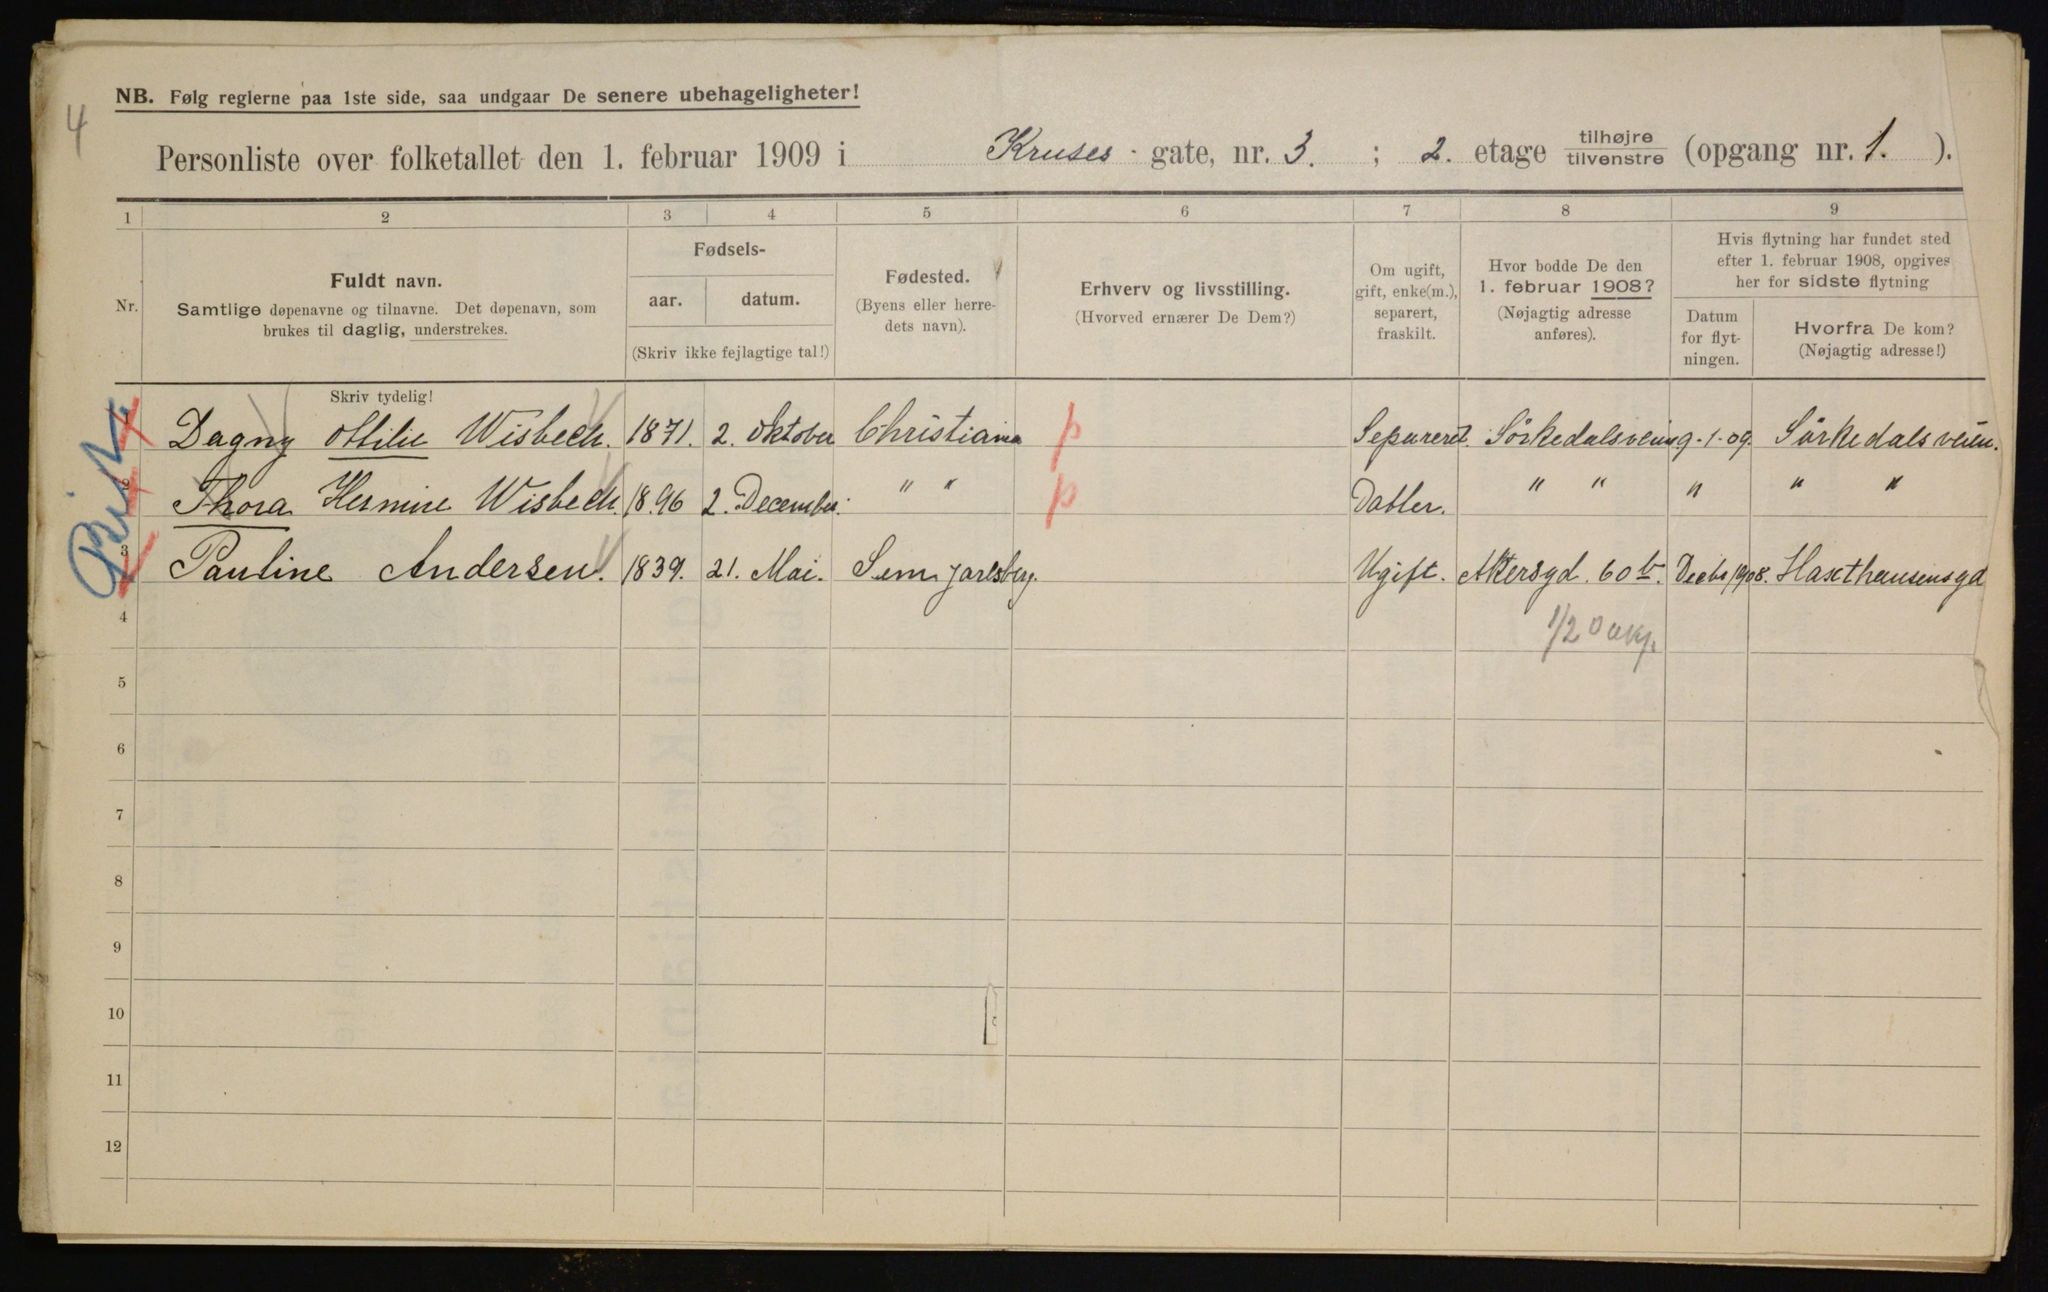 4
NB. Følg reglerne paa 1ste side, saa undgaar De senere ubehageligheter!
Personliste over folketallet den 1. februar 1909 i Kruses gate, nr. 3. ; 2. etage tilhøjre tilvenstre (opgang nr. 1. ).
1 2 3 4 5 6 7 8 9
Nr.
Fuldt navn.
Samtlige døpenavne og tilnavne. Det døpenavn, som
brukes til daglig, understrekes.
Fødsels-
aar. datum.
(Skriv ikke fejlagtige tal!)
Fødested.
(Byens eller herre-
dets navn).
Erhverv og livsstilling.
(Hvorved ernærer De Dem?)
Om ugift,
gift, enke(m.),
separert,
fraskilt.
Hvor bodde De den
1. februar 1908?
(Nøjagtig adresse
anføres).
Hvis flytning har fundet sted
efter 1. februar 1908, opgives
her for sidste flytning
Datum
for flyt-
ningen.
Hvorfra De kom?
(Nøjagtig adresse!)
Skriv tydelig!
1 Dagny Ottilie Wisbech. 1871. 2. Oktober Christiania p Sepureret. Sörkedalsveiin 9-1-09. Sörkedalsveiin.
2 Thora Hermine Wisbech. 1896 2. December. " " p Datter. " " " " "
3 Pauline Andersen. 1839. 21. Mai. Sem Jarlsberg. Ugift. Akersgd. 60 b. Decbr 1908. Haxthausensgd
4 1/2 0
5
6
7
8
9
10
11
12